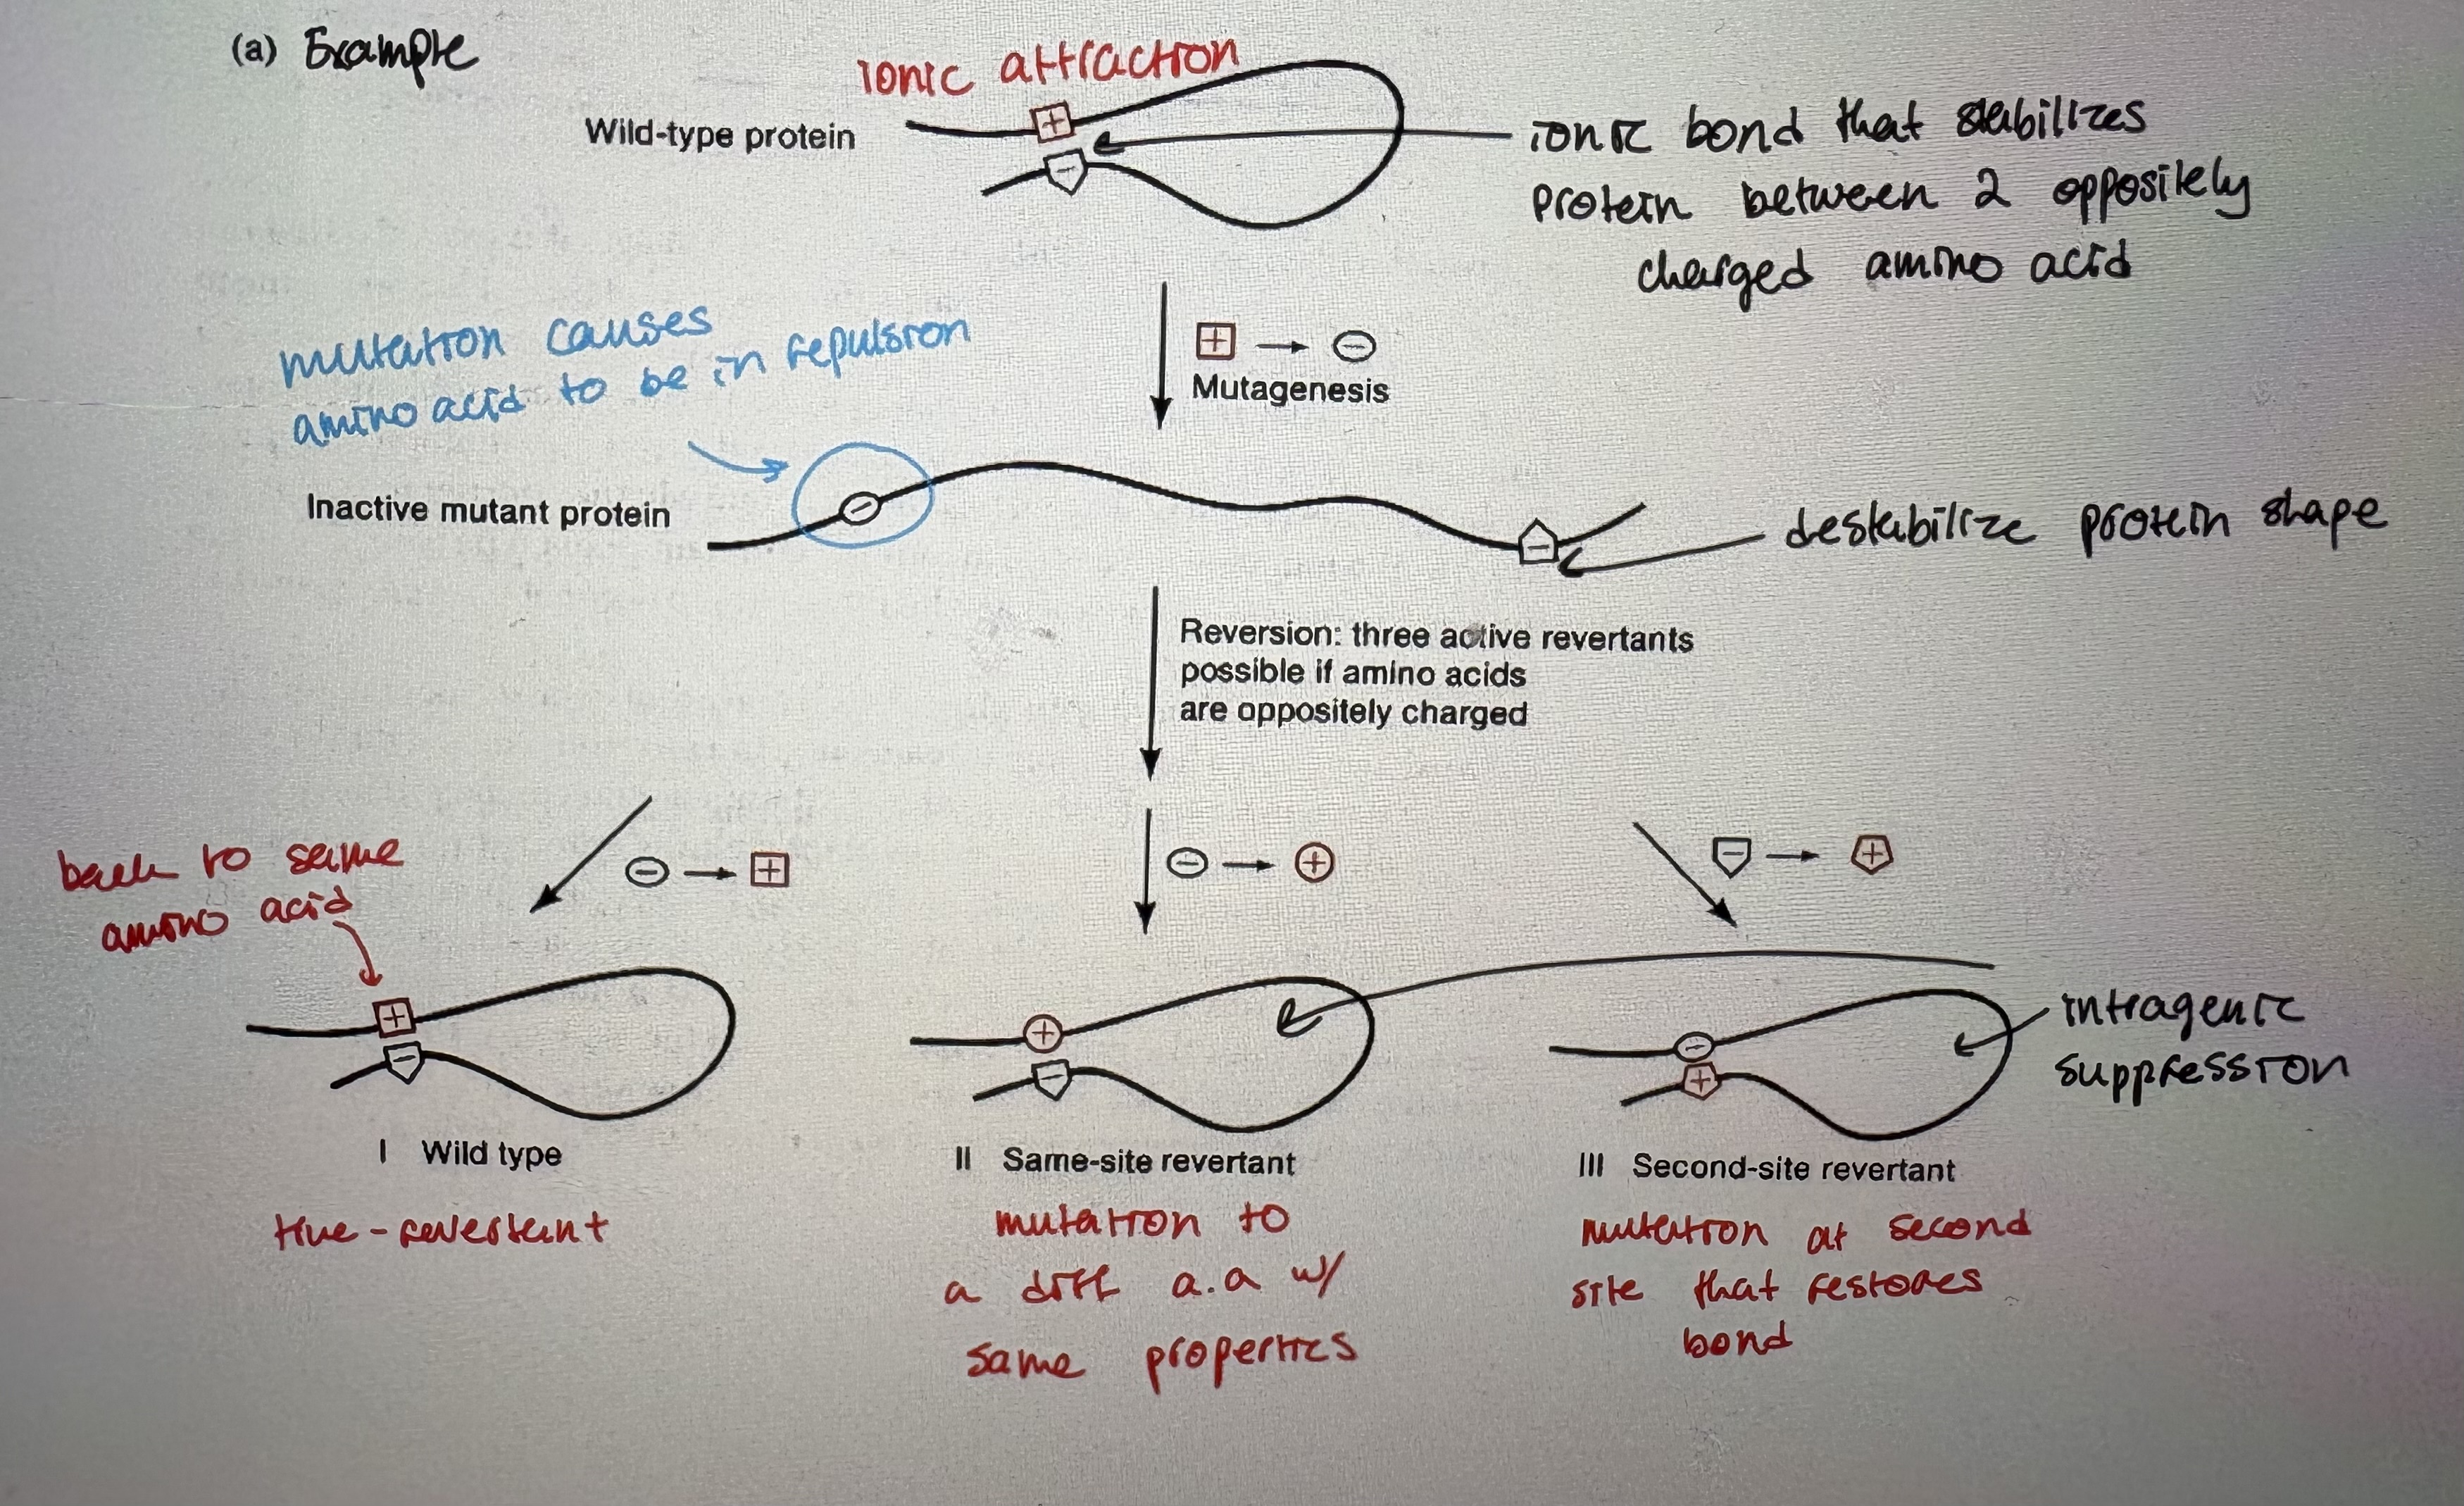 (a) Example
ionic attraction
Wild-type protein
ionic bond that stabilizes
protein between 2 oppositely
charged amino acid
+ → −
Mutagenesis
mutation causes
amino acid to be in repulsion
Inactive mutant protein
destabilize protein shape
Reversion: three active revertants
possible if amino acids
are oppositely charged
back to same
amino acid
− → +
− → +
− → +
intragenic
suppression
I Wild type
II Same-site revertant
III Second-site revertant
true-revertant
mutation to
a diff a.a w/
same properties
mutation at second
site that restores
bond